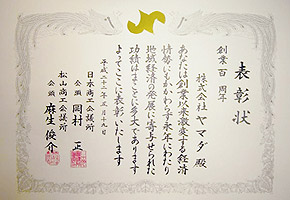 表彰状
創業百周年
株式会社ヤマダ殿
あなたは創業以来激変する経済
情勢にもかかわらず永年にわたり
地域経済の発展に寄与せられた
功績はまことに多大であります
よってここに表彰いたします
平成二十三年五月十九日
日本商工会議所
会頭 岡村 正
松山商工会議所
会頭 麻生俊介